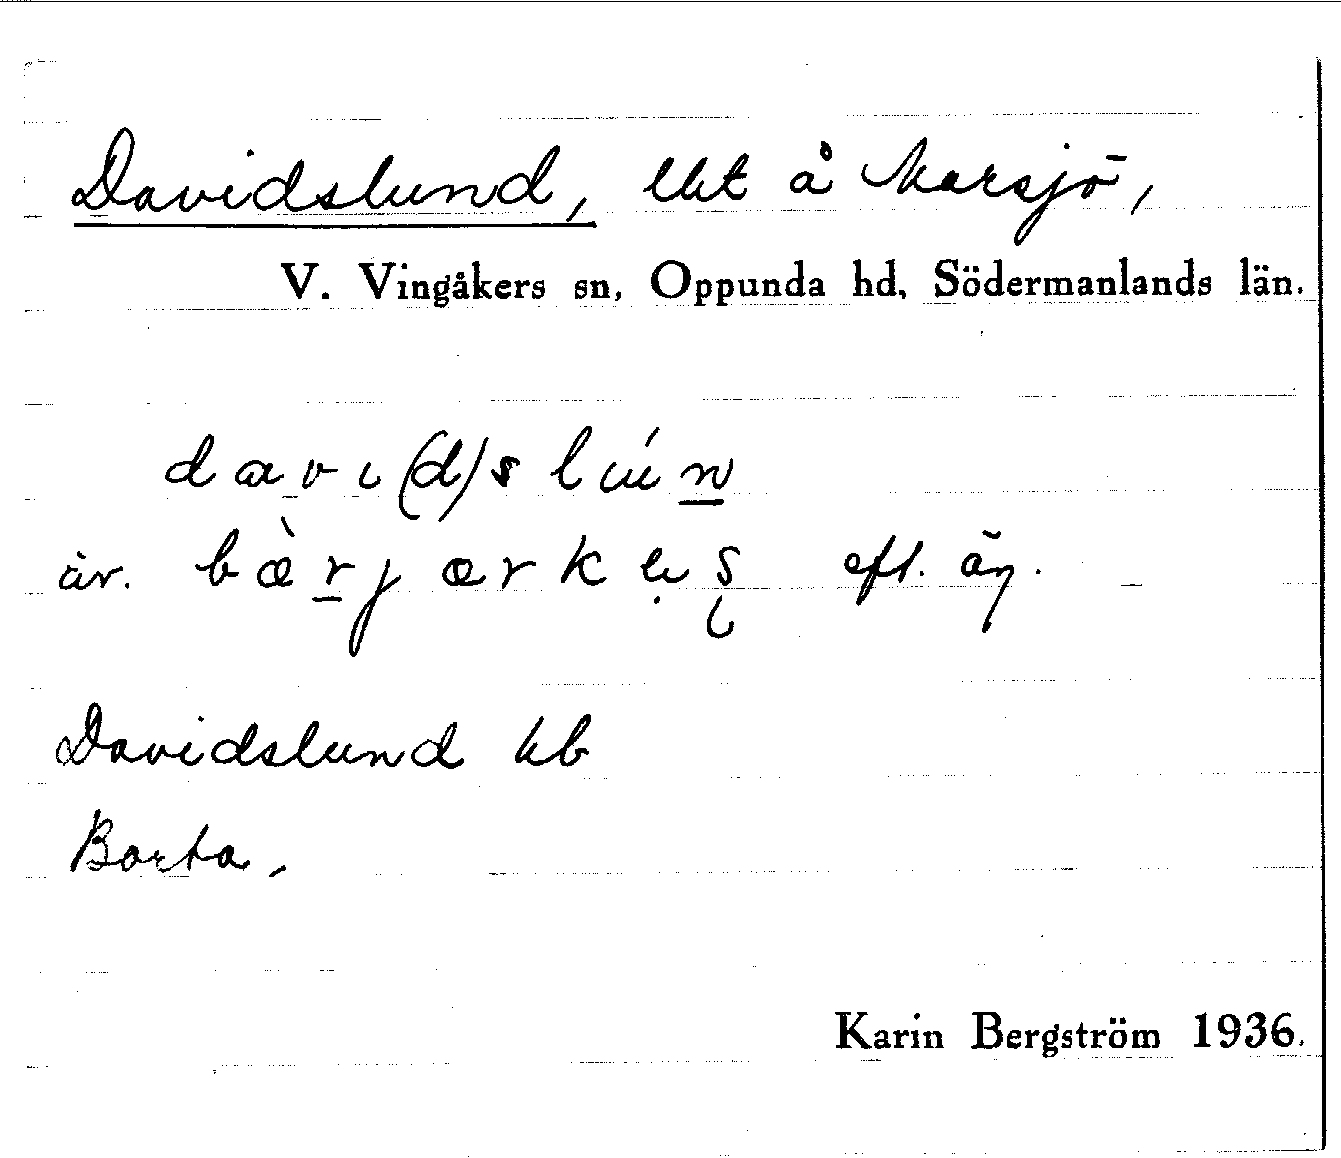 Davidslund, lht å Marsjö,
V. Vingåkers sn, Oppunda hd, Södermanlands län.
davi(d)s lún
äv. bæ̀rjærkɶs eft. äg.
Davidslund kb
Borta.
Karin Bergström 1936.